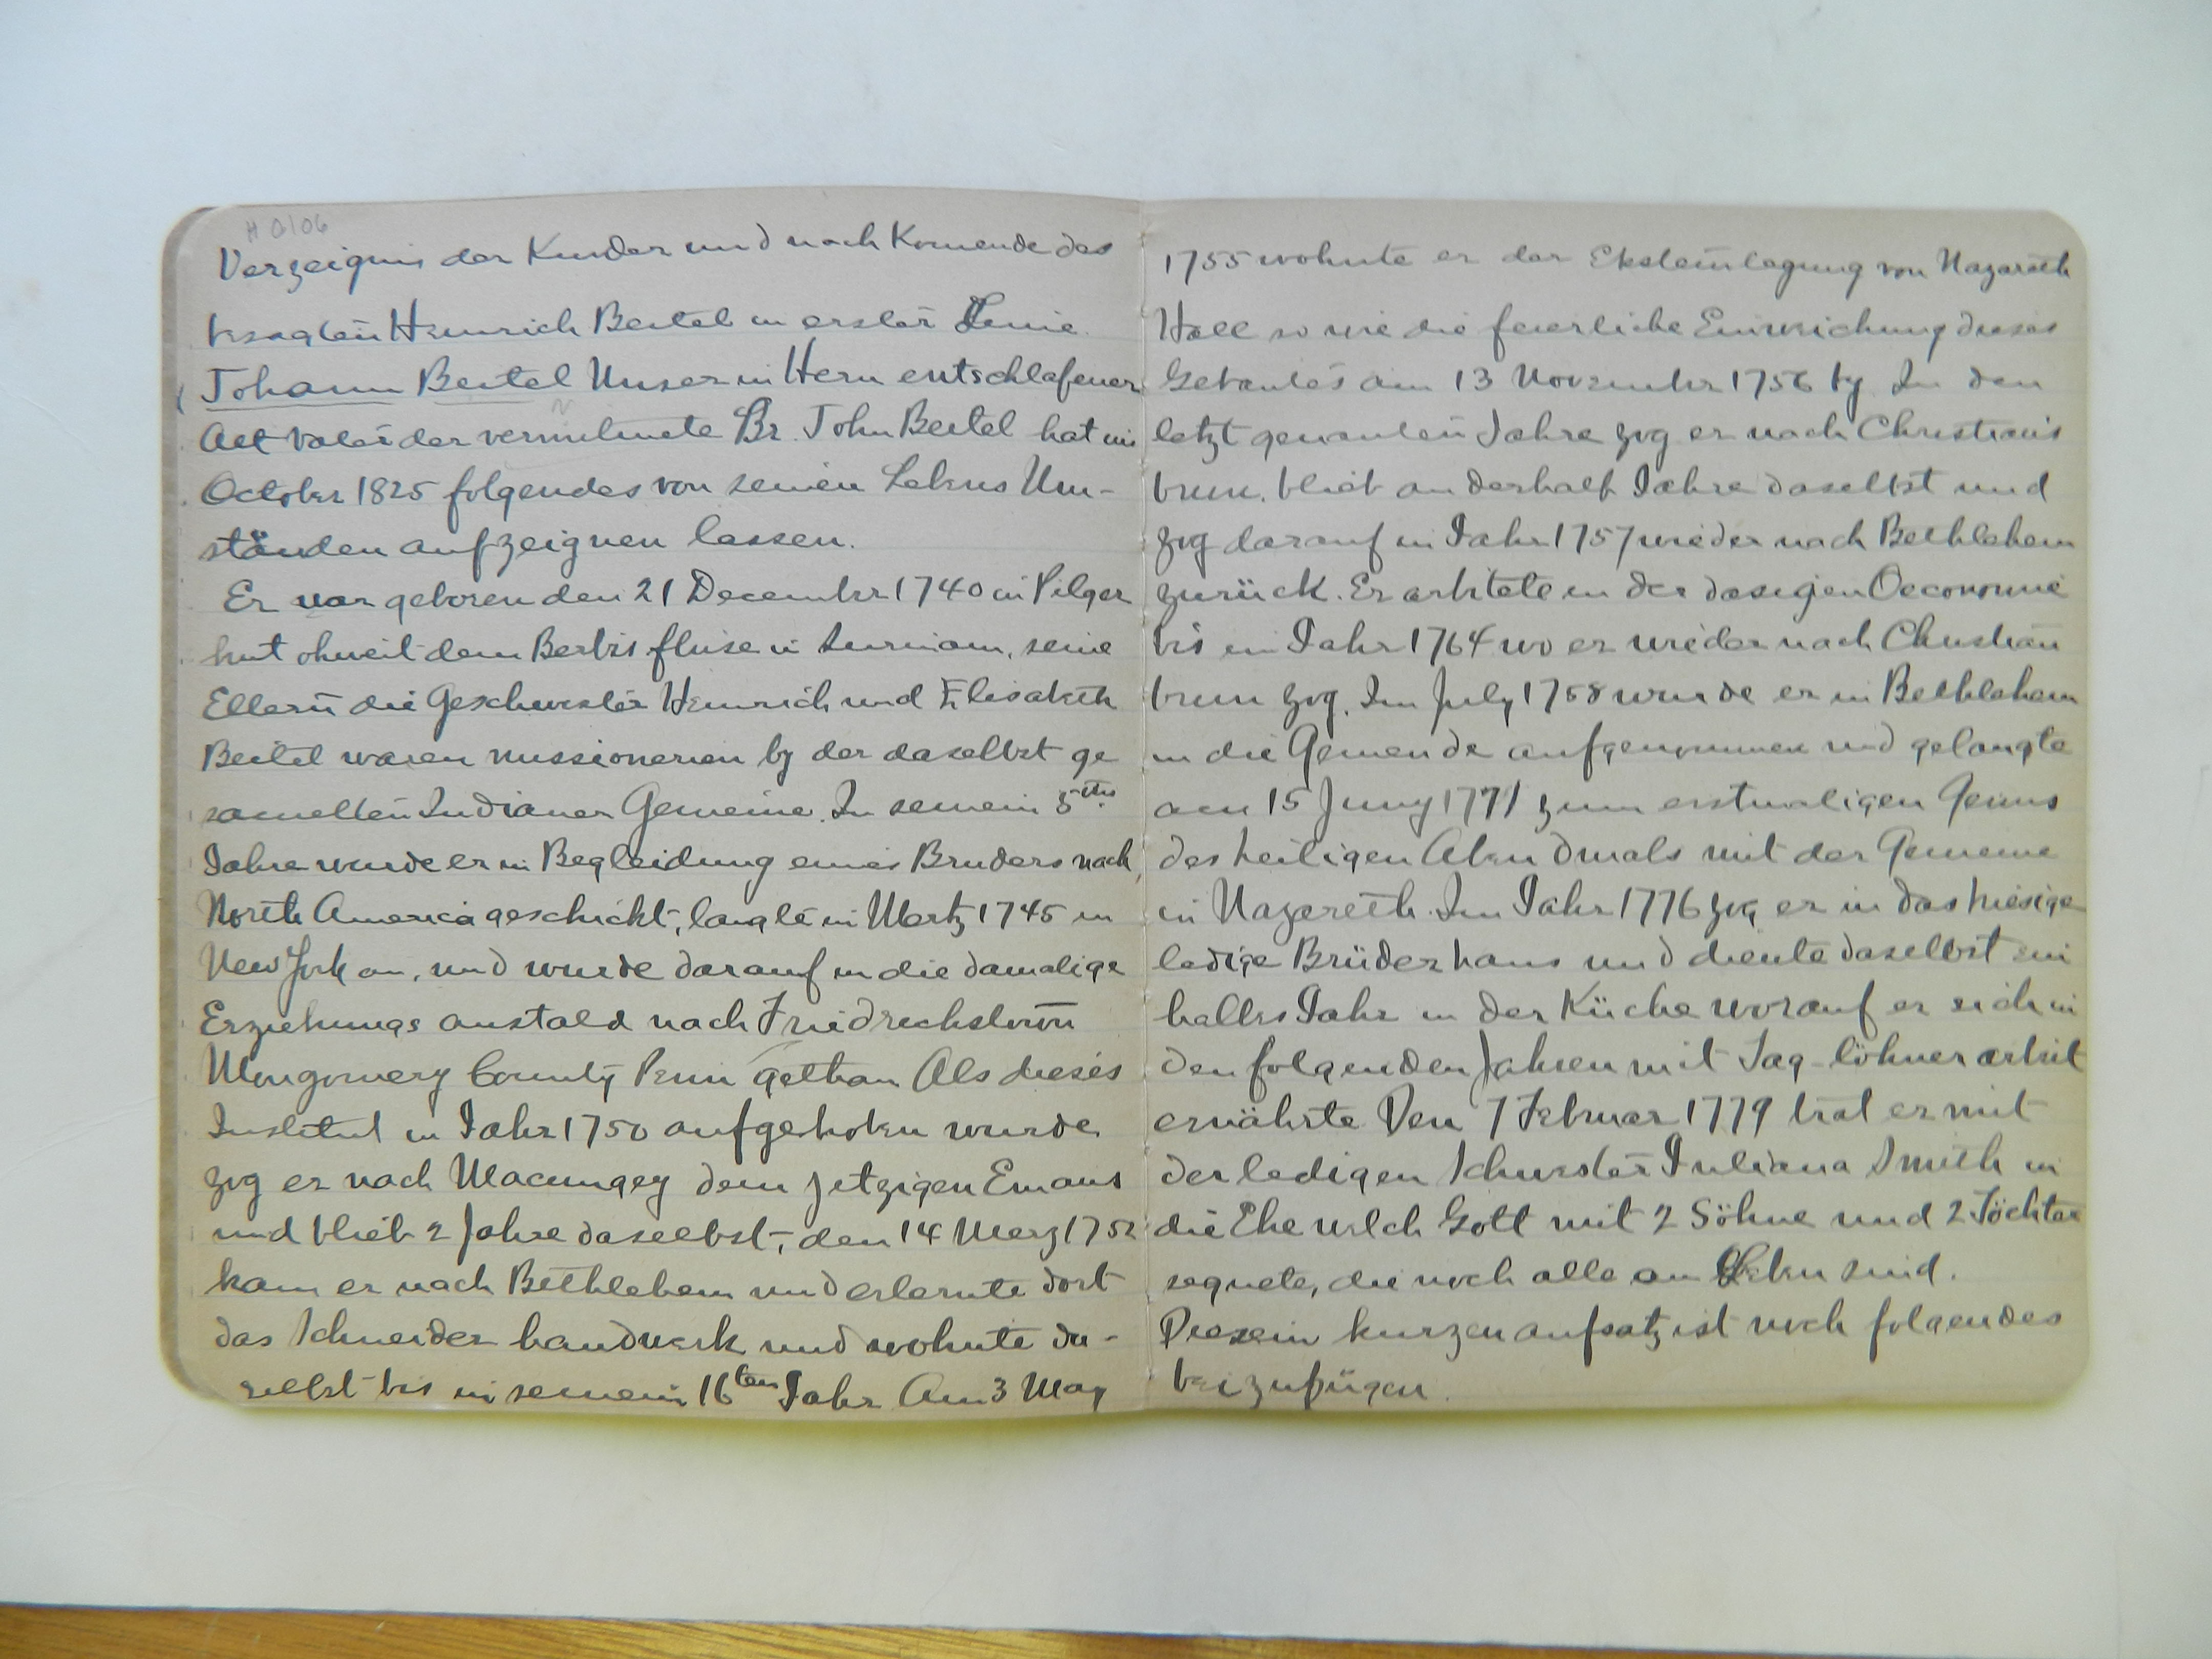 H 0106
Verzeignis der Kinder und nach Komende des
besagten Heinrich Beitel in erster Lienie.
Johann Beitel Unser in Hern entschlafener
Alt Vater der verwitwete Br. John Beitel hat im
October 1825 folgendes von seinen Lebens Um-
ständen aufzeignen lassen.
Er war geboren den 21 December 1740 in Pilger
hut ohnweit dem Berbis fluse in Surinam, seine
Elleru die Geschwester Heinrich und Elisabeth
Beitel waren missionerien by der daselbst ge
samelten Indianer Gemeine. In seinem 5ten
Jahre wurde er in Begleidung eines Bruders nach
North America geschickt, langte in Mertz 1745 in
New York an, und wurde darauf in die damalige
Erziehungs anstald nach Friedrechstown
Mongomery County Penn gethan Als dieses
Institut in Jahr 1750 aufgehoben wurde
zog er nach Macungey dem jetzigen Emaus
und blieb 2 Jahre daselbst, den 14 Merz 1752
kam er nach Bethlehem und erlernte dort
das Schneider handwerk und wohnte da-
selbst bis in seinem 16ten Jahr Am 3 May
1755 wohnte er der Eksteinlegung von Nazareth
Hall so wie die feierliche Einweichung dieses
Gebaudes am 13 November 1756 by In den
letzt genanten Jahre zog er nach Christians
brun. blieb anderhalb Jahre daselbst und
zog darauf in Jahr 1757 wieder nach Bethlehem
zurück. Er arbitete in der dasigen Oeconomie
bis in Jahr 1764 wo er wieder nach Christian
brun zog. Im July 1758 wurde er in Bethlehem
in die Gemeinde aufgenommen und gelangte
am 15 Juny 1771 zum erstmaligen Genus
des heiligen Abendmals mit der Gemeine
in Nazareth. Im Jahr 1776 zog er in das hiesige
ledige Brüderhaus und diente daselbst ein
halbes Jahr in der Küche worauf er sich in
den folgenden Jahren mit Tag-löhner arbeit
ernährte Den 7 Februar 1779 trat er mit
der ledigen Schwester Juliana Smith in
die Ehe welch Gott mit 2 Söhne und 2 Töchter
segnete, die noch alle am Leben sind.
Diesem kurzen aufsatz ist noch folgendes
beizufügen.